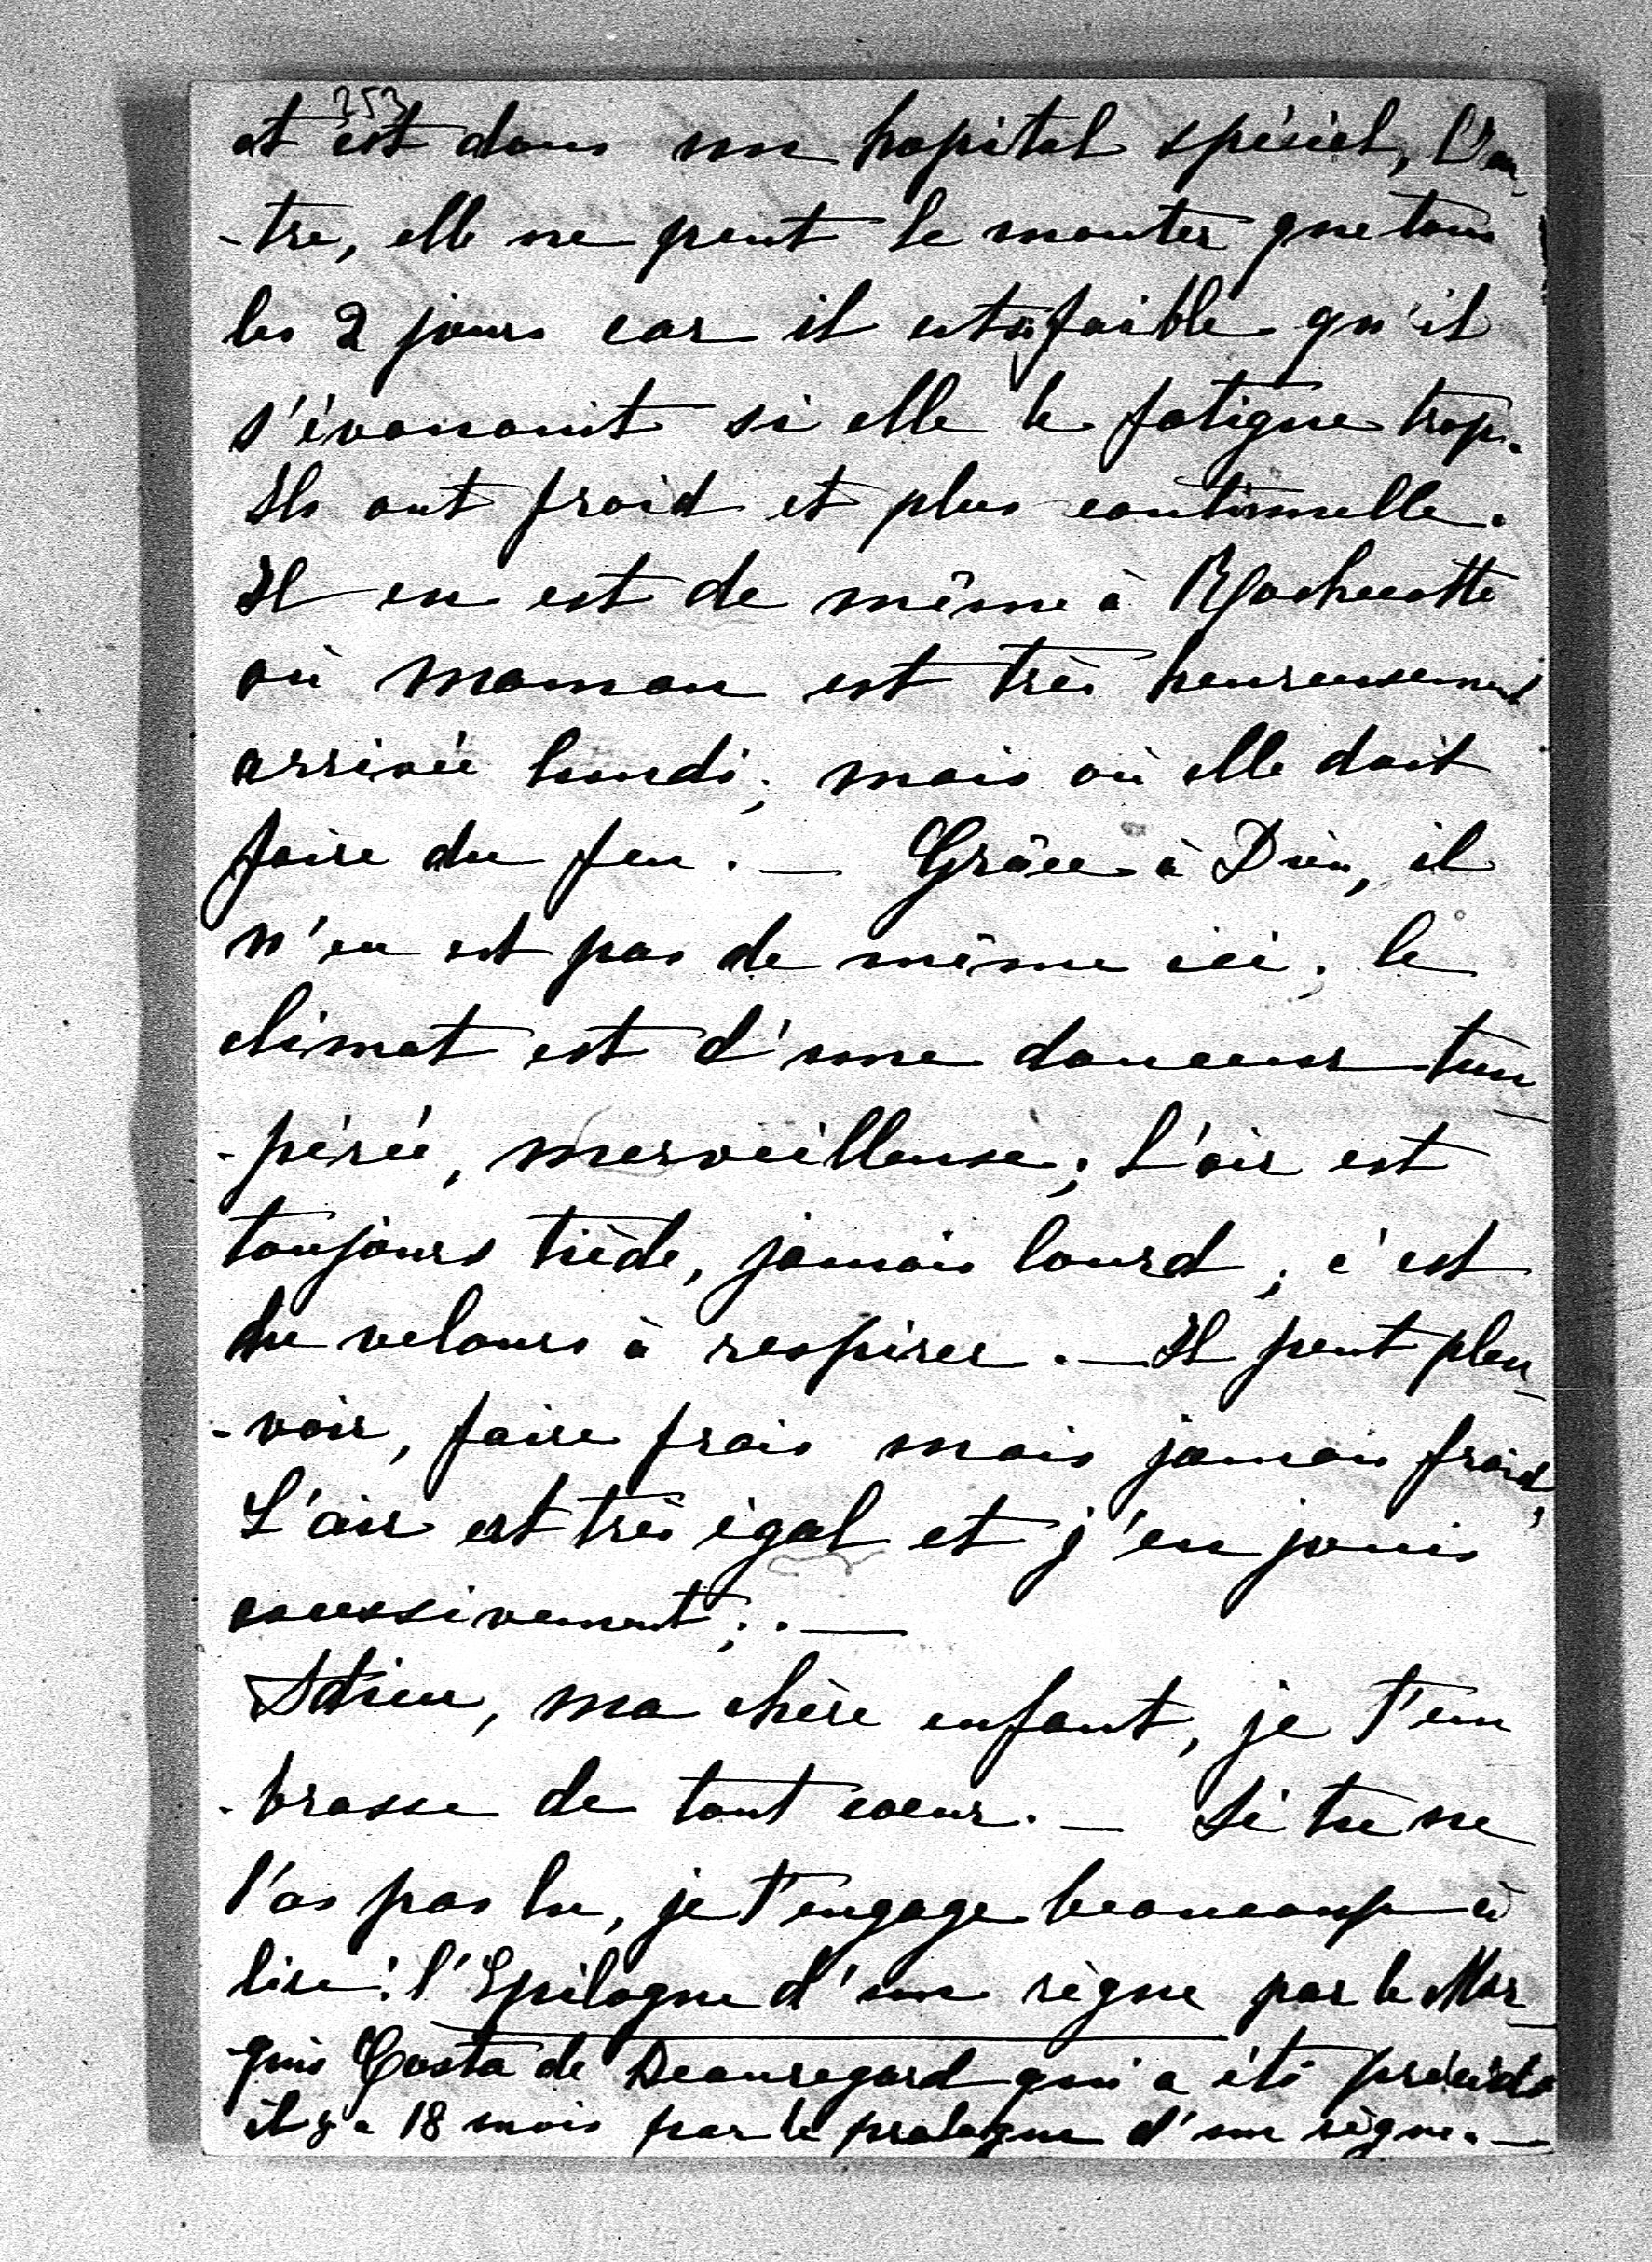 253
et est dans un hopital spécial, l'au-
-tre, elle ne peut le monter que tous
les 2 jours car il est si faible qu'il
s'évanouit si elle le fatigue trop.
Ils ont froid et pluie continuelle.
Il en est de même à Rochecotte
où maman est très heureusement
arrivée lundi; mais où elle doit
faire du feu. — Grâce à Dieu, il
n'en est pas de même ici; le
climat est d'une douceur tem-
-pérée, merveilleuse; l'air est
toujours tiède, jamais lourd; c'est
du velours à respirer. — Il peut pleu-
-voir, faire frais mais jamais froid;
L'air est très égal et j'en jouis
excessivement; . —
Adieu, ma chère enfant, je t'em
-brasse de tout coeur. — Si tu ne
l'as pas lu, je t'engage beaucoup à
lire: l'Epilogue d'un règne par le Mar-
-quis Costa de Beauregard qui a été précédé
il y a 18 mois par le prologue d'un règne. —